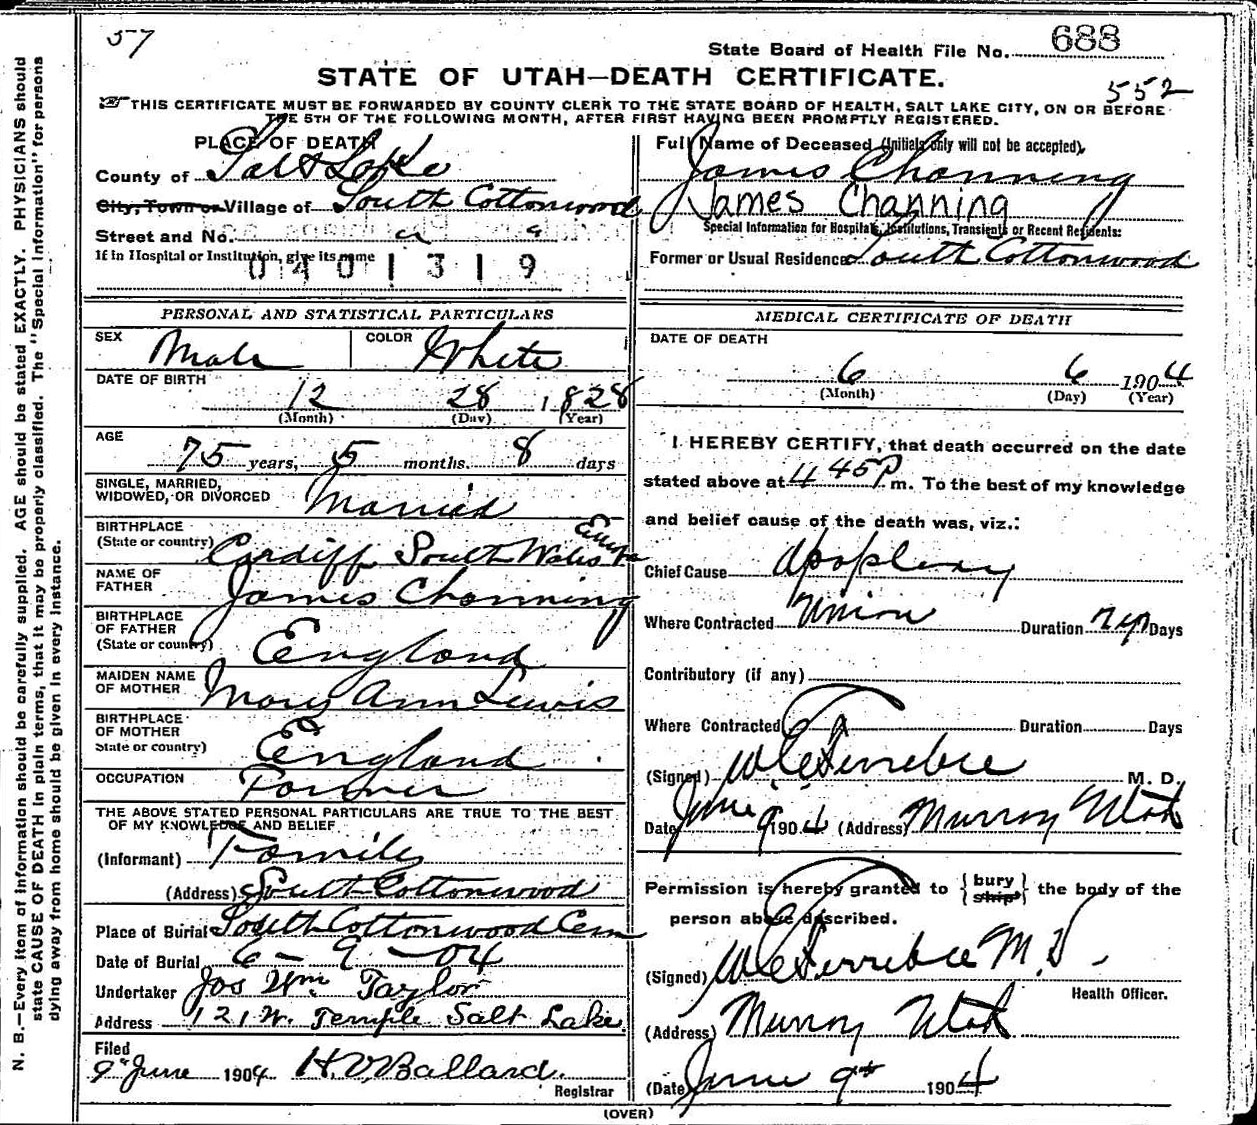 57
State Board of Health File No. 688
STATE OF UTAH—DEATH CERTIFICATE.
552
THIS CERTIFICATE MUST BE FORWARDED BY COUNTY CLERK TO THE STATE BOARD OF HEALTH, SALT LAKE CITY, ON OR BEFORE
THE 5TH OF THE FOLLOWING MONTH, AFTER FIRST HAVING BEEN PROMPTLY REGISTERED.
PLACE OF DEATH
County of Salt Lake
City, Town or Village of South Cottonwood
Street and No.
If in Hospital or Institution, give its name
0401319
Full Name of Deceased (Initials only will not be accepted).
James Channing
James Channing
Special Information for Hospitals, Institutions, Transients or Recent Residents:
Former or Usual Residence South Cottonwood
PERSONAL AND STATISTICAL PARTICULARS
SEX Male COLOR White
DATE OF BIRTH
12 28 1828
(Month) (Day) (Year)
AGE
75 years, 5 months. 8 days
SINGLE, MARRIED,
WIDOWED, OR DIVORCED Married
BIRTHPLACE
(State or country) Cardiff South Wales
NAME OF
FATHER James Channing
BIRTHPLACE
OF FATHER
(State or country) England
MAIDEN NAME
OF MOTHER Mary Ann Lewis
BIRTHPLACE
OF MOTHER
State or country) England
OCCUPATION Farmer
THE ABOVE STATED PERSONAL PARTICULARS ARE TRUE TO THE BEST
OF MY KNOWLEDGE AND BELIEF
(Informant) Family
(Address) South Cottonwood
Place of Burial South Cottonwood Cem
Date of Burial 6 - 9 - 04
Undertaker Jos Wm Taylor
Address 121 W. Temple Salt Lake
Filed
9" June 1904 H. V. Ballard.
Registrar
MEDICAL CERTIFICATE OF DEATH
DATE OF DEATH
6 6 1904
(Month) (Day) (Year)
I HEREBY CERTIFY, that death occurred on the date
stated above at 4 45 P m. To the best of my knowledge
and belief cause of the death was, viz.:
Chief Cause Apoplexy
Where Contracted Union Duration Days
Contributory (if any)
Where Contracted Duration Days
(Signed) W C Ferrebee M. D.
Date June 9 1904 (Address) Murray Utah
Permission is hereby granted to {bury ship} the body of the
person above described.
(Signed) W C Ferrebee M. D.
Health Officer.
(Address) Murray Utah
(Date June 9th 1904
(OVER)
N. B.—Every item of information should be carefully supplied. AGE should be stated EXACTLY. PHYSICIANS should
state CAUSE OF DEATH in plain terms, that it may be properly classified. The "Special Information" for persons
dying away from home should be given in every instance.